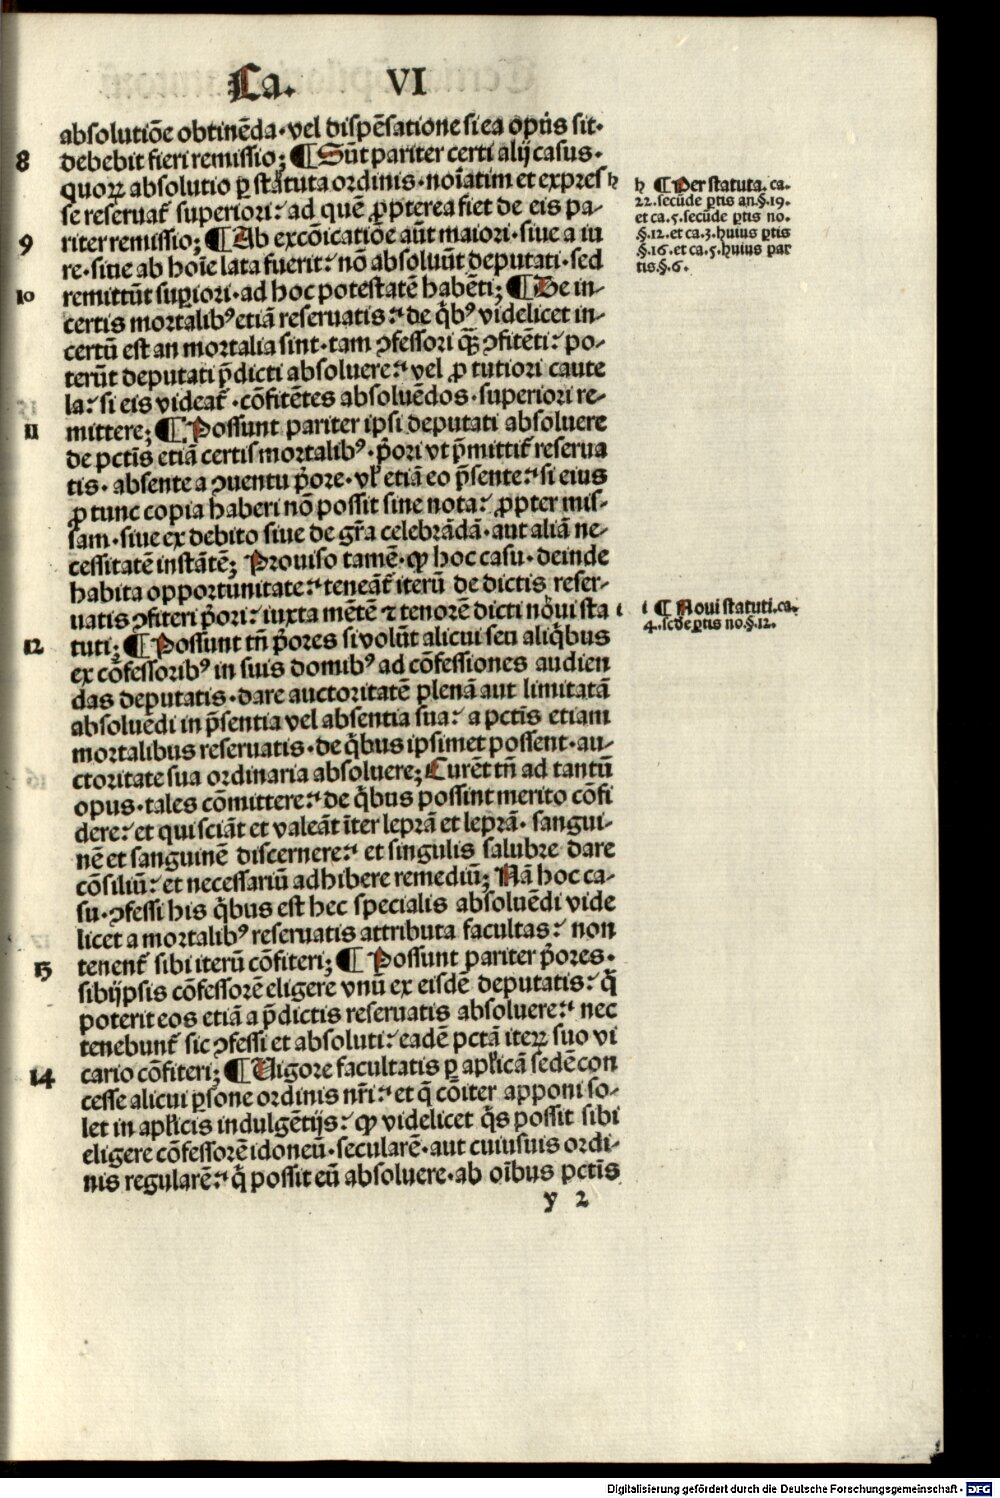 Ca. VI
absolutiōe obtinēda·vel dispēsatione si ea opꝰ sit·
8 debebit fieri remissio; ¶ Sūt pariter certi alij casus·
quoꝝ absolutio ꝑ statuta ordinis·noīatim et expres h
se reservat᷑ superiori: ad quē ꝓpterea fiet de eis pa-
9 riter remissio; ¶ Ab excōicatiōe aūt maiori·siue a iu
re·siue ab hoīe lata fuerit: nō absoluūt deputati·sed
10 remittūt suꝑiori·ad hoc potestatē habēti; ¶ De in-
certis mortalibꝰ etiā reseruatis: de q̄bꝰ videlicet in-
certū est an mortalia sint·tam ꝯfessori qꝫ̄ ꝯfitēti: po-
terūt deputati p̄dicti absoluere: vel ꝓ tutiori caute
la: si eis videat᷑·cōfitētes absoluēdos·superiori re-
11 mittere; ¶ Possunt pariter ipsi deputati absoluere
de pctīs etiā certis mortalibꝰ·p̄ori vt p̄mittit᷑ reserua
tis·absente a ꝯuentu p̄ore·vl᷑ etiā eo p̄sente: si eius
ꝓ tunc copia haberi nō possit sine nota: ꝓpter mis-
sam·siue ex debito siue de gr̄a celebrādā·aut aliā ne-
cessitatē instātē; Prouiso tamē·ꝙ hoc casu·deinde
habita opportunitate: teneāt᷑ iterū de dictis reser-
uatis ꝯfiteri p̄ori: iuxta mētē ⁊ tenorē dicti noui sta i
12 tuti; ¶ Possunt tn̄ p̄ores si volūt alicui seu aliq̄bus
ex cōfessoribꝰ in suis domibꝰ ad cōfessiones audien
das deputatis·dare auctoritatē plenā aut limitatā
absoluēdi in p̄sentia vel absentia sua: a pctīs etiam
mortalibus reseruatis·de q̄bus ipsimet possent·au-
ctoritate sua ordinaria absoluere; Curēt tn̄ ad tantū
opus·tales cōmittere: de q̄bus possint merito cōfi
dere: et qui sciāt et valeāt īter leprā et leprā·sangui-
nē et sanguinē discernere: et singulis salubre dare
cōsiliū: et necessariū adhibere remediū; Nā hoc ca-
su·ꝯfessi his q̄bus est hec specialis absoluēdi vide
licet a mortalibꝰ reseruatis attributa facultas: non
13 tenent᷑ sibi iterū cōfiteri; ¶ Possunt pariter p̄ores·
sibijpsis cōfessorē eligere vnū ex eisdē deputatis: q̄
poterit eos etiā a p̄dictis reseruatis absoluere: nec
tenebunt᷑ sic ꝯfessi et absoluti: eadē pctā iteꝝ suo vi
14 cario cōfiteri; ¶ Vigore facultatis ꝑ apl᷑icā sedē con
cesse alicui ꝑsone ordinis nr̄i: et q̄ cōiter apponi so-
let in apl᷑icis indulgētijs: ꝙ videlicet q̄s possit sibi
eligere cōfessorē idoneū·secularē·aut cuiusuis ordi-
nis regularē: q̄ possit eū absoluere·ab oībus pctīs
y 2
h ¶ Per statuta. ca.
22. secūde ꝑtis an.§.19.
et ca.5. secūde ꝑtis no.
§.12. et ca.3. huius ꝑtis
§.16. et ca.5. huius par
tis.§.6.
i ¶ Noui statuti.ca.
4. scd̄e ꝑtis no.§.12.
Digitalisierung gefördert durch die Deutsche Forschungsgemeinschaft - DFG